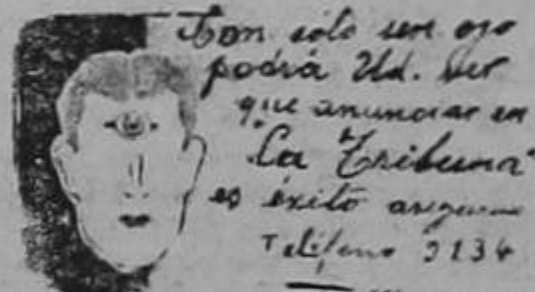 Con sólo un ojo
podrá Ud. ver
que anunciar en
"La Tribuna"
es éxito
Teléfono 3134